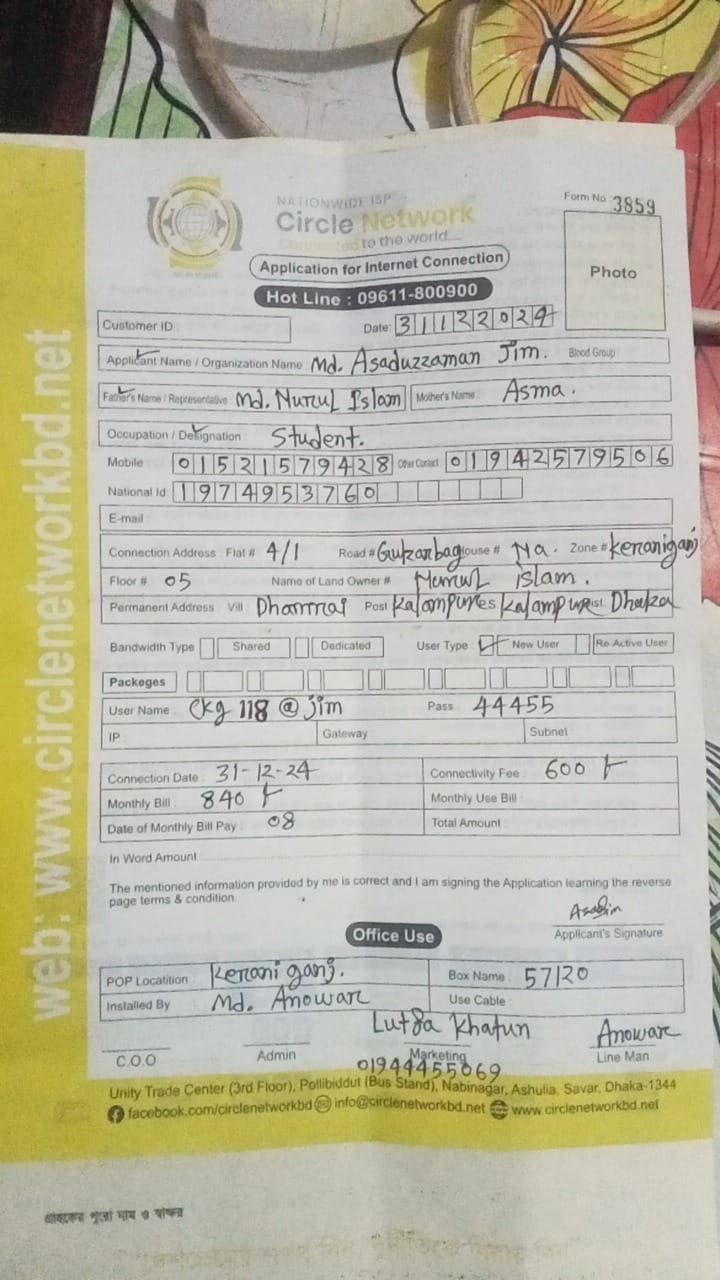 NATIONWIDE ISP
Circle Network
Connected to the world....
Form No 3859
Application for Internet Connection
Hot Line : 09611-800900
Photo
Customer ID
Date: 31122024
Applicant Name / Organization Name Md. Asaduzzaman Jim. Blood Group
Father's Name / Representative Md. Nurul Islam Mother's Name : Asma.
Occupation / Designation Student.
Mobile : 01521579428 Other Contact : 01942579506
National Id: 1974953760
E-mail
Connection Address : Flat # 4/1 Road # Gulzarbag House # Na. Zone # Keraniganj
Floor # 05 Name of Land Owner # Nurul islam.
Permanent Address Vill Dhamrai Post Kalampur Kalampur Dist Dhaka
Bandwidth Type Shared Dedicated User Type : New User Re-Active User
Packeges
User Name : ckg 118 @ jim Pass : 44455
IP : Gateway Subnet
Connection Date : 31-12-24 Connectivity Fee : 600
Monthly Bill : 840 Monthly Use Bill :
Date of Monthly Bill Pay : 08 Total Amount
In Word Amount
The mentioned information provided by me is correct and I am signing the Application learning the reverse
page terms & condition.
Applicant's Signature
Office Use
POP Locatition : Kerani ganj. Box Name : 57/20
Installed By Md. Anowar Use Cable :
Lutfa Khatun Anowar
C.O.O Admin Marketing Line Man
01944455069
Unity Trade Center (3rd Floor), Pollibiddut (Bus Stand), Nabinagar, Ashulia, Savar, Dhaka-1344
facebook.com/circlenetworkbd info@circlenetworkbd.net www.circlenetworkbd.net
web: www.circlenetworkbd.net
গ্রাহকের পুরো নাম ও স্বাক্ষর